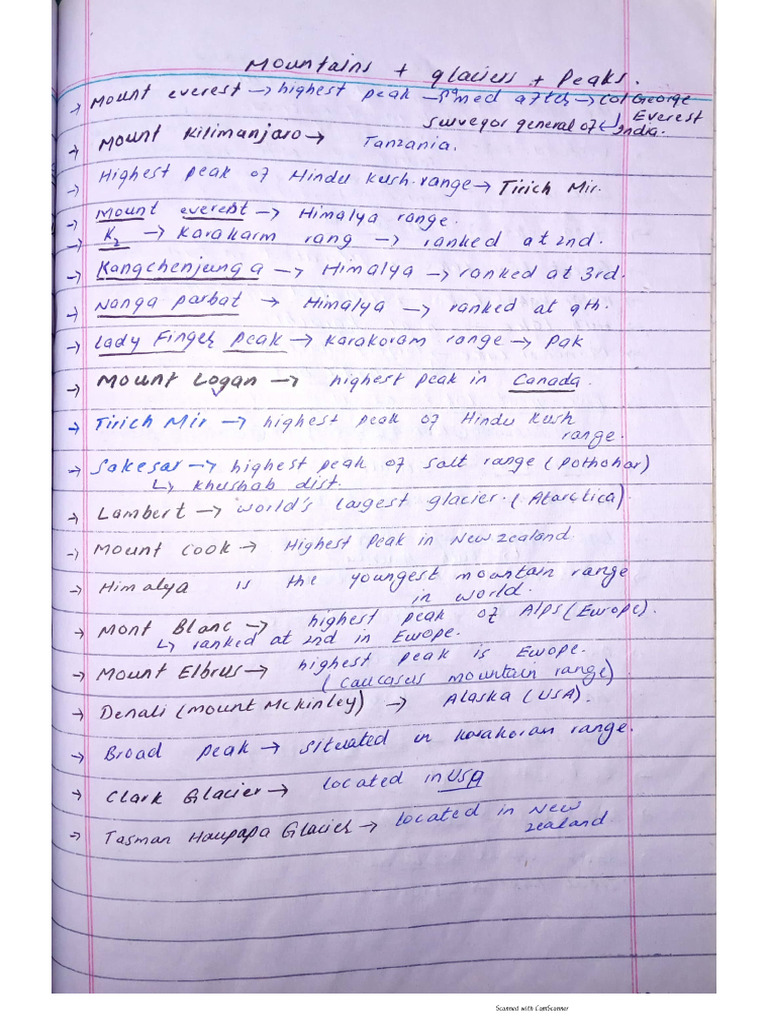 Mountains + glaciers + Peaks.
→ Mount everest → highest peak – named after → Col George Everest
surveyor general of India.
→ Mount Kilimanjaro → Tanzania.
→ Highest peak of Hindu Kush range → Tirich Mir.
→ Mount everest → Himalya range.
→ K2 → Karakarm rang → ranked at 2nd.
→ Kangchenjunga → Himalya → ranked at 3rd.
→ Nanga parbat → Himalya → ranked at 9th.
→ Lady Finger peak → Karakoram range → Pak
→ Mount Logan → highest peak in Canada.
→ Tirich Mir → highest peak of Hindu Kush
range.
→ Sakesar → highest peak of salt range (Pothohar)
↳ Khushab dist.
→ Lambert → world's largest glacier. (Atarctica).
→ Mount Cook → Highest Peak in New zealand.
→ Himalya is the youngest mountain range
in world.
→ Mont Blanc → highest peak of Alps (Europe).
↳ ranked at 2nd in Europe.
→ Mount Elbrus → highest peak is Europe.
(Caucasus mountain range)
→ Denali (Mount Mckinley) → Alaska (USA).
→ Broad peak → situated in Karakoram range.
→ Clark Glacier → located in USA
→ Tasman Haupapa Glacier → located in New
zealand
Scanned with CamScanner